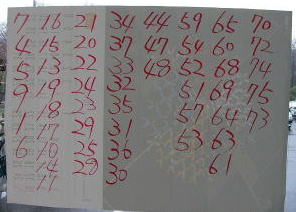 7 16 21 34 44 59 65 70
4 15 20 37 47 54 60 72
5 13 22 33 48 52 68 74
9 19 24 32 51 69 75
8 18 23 35 57 64 73
1 17 29 31 53 63
6 10 25 36 61
14 28 30
11